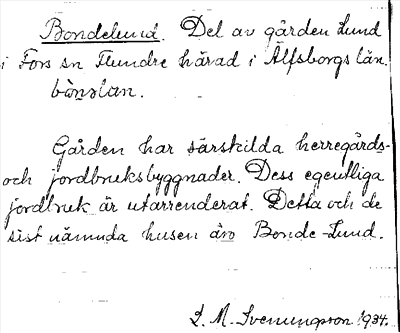 Bondelund. Del av gården Lund
i Fors sn Flundre härad i Älfsborgs län.
Gården har särskilda herregårds-
och jordbruksbyggnader. Dess egentliga
jordbruk är utarrenderat. Detta och de
sist nämnda husen äro Bonde-Lund.
S. M. Svenungsson 1934.